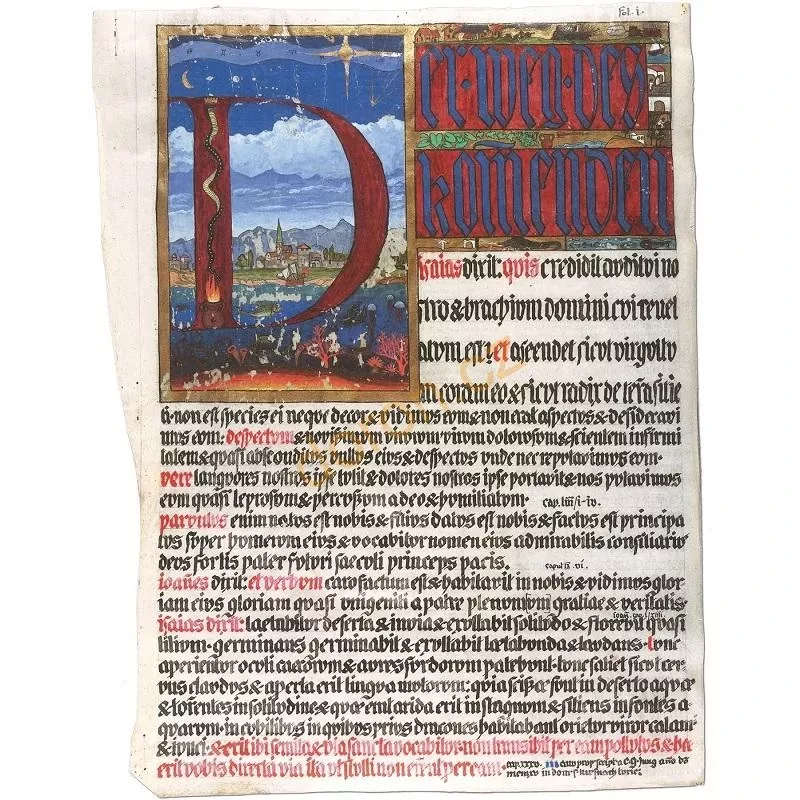 fol. i.
Der·weg·des
komenden
Isaias dixit: quis credidit avditvi no
stro & brachivm domini cvi revel
atvm est: et ascendet sicvt virgvltv
m coram eo & sicvt radix de terra sitie
ti· non est species ei neqve decor & vidimvs evm & non erat aspectvs & desideravi
mvs evm: despectvm & novissimvm virorvm virvm dolorosvm & scientem infirmi
tatem & qvasi absconditvs vvltvs eivs & despectvs vnde nec repvtavimvs evm·
vere langvores nostros ipse tvlit & dolores nostros ipse portavit & nos pvtavimvs
evm qvasi leprosvm & percvssvm a deo & hvmiliatvm·
parvvlvs enim natvs est nobis & filivs datvs est nobis & factvs est principa
tvs svper hvmervm eivs & vocabitvr nomen eivs admirabilis consiliarivs
devs fortis pater fvtvri saecvli princeps pacis.
ioanes dixit: et verbvm caro factvm est & habitavit in nobis & vidimvs glor
iam eivs gloriam qvasi vnigeniti a patre plenvm gratiae & veritatis·
isaias dixit: laetabitvr deserta & invia & exvltabit solitvdo & florebit qvasi
lilivm· germinans germinabit & exvltabit laetabvnda & lavdans· tvnc
aperientvr ocvli caecorvm & avres svrdorvm patebvnt· tvnc saliet sicvt cer
vvs clavdvs & aperta erit lingva mvtorvm: qvia scissae svnt in deserto aqvae
& torrentes in solitvdine & qvae erat arida erit in stagnvm & sitiens in fontes a-
qvarvm· in cvbilibvs in qvibvs privs dracones habitabant orietvr viror calami
& ivnci· & erit ibi semita & via sancta vocabitvr· non transibit per eam pollvtvs & haec
erit vobis directa via ita vt stvlti non errent per eam.